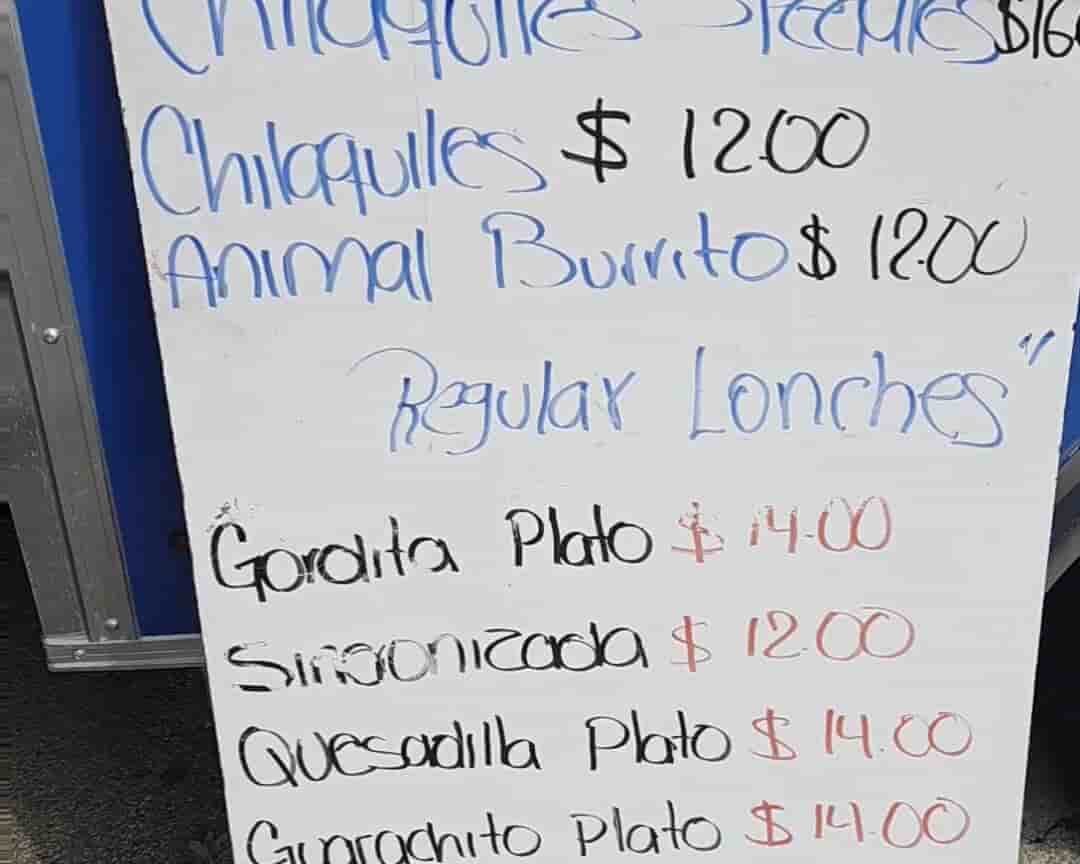 Chilaquiles $16
Chilaquiles $ 12.00
Animal Burrito $ 12.00
Regular Lonches"
Gordita Plato $ 14.00
Sincronizada $ 12.00
Quesadilla Plato $ 14.00
Guarachito Plato $ 14.00